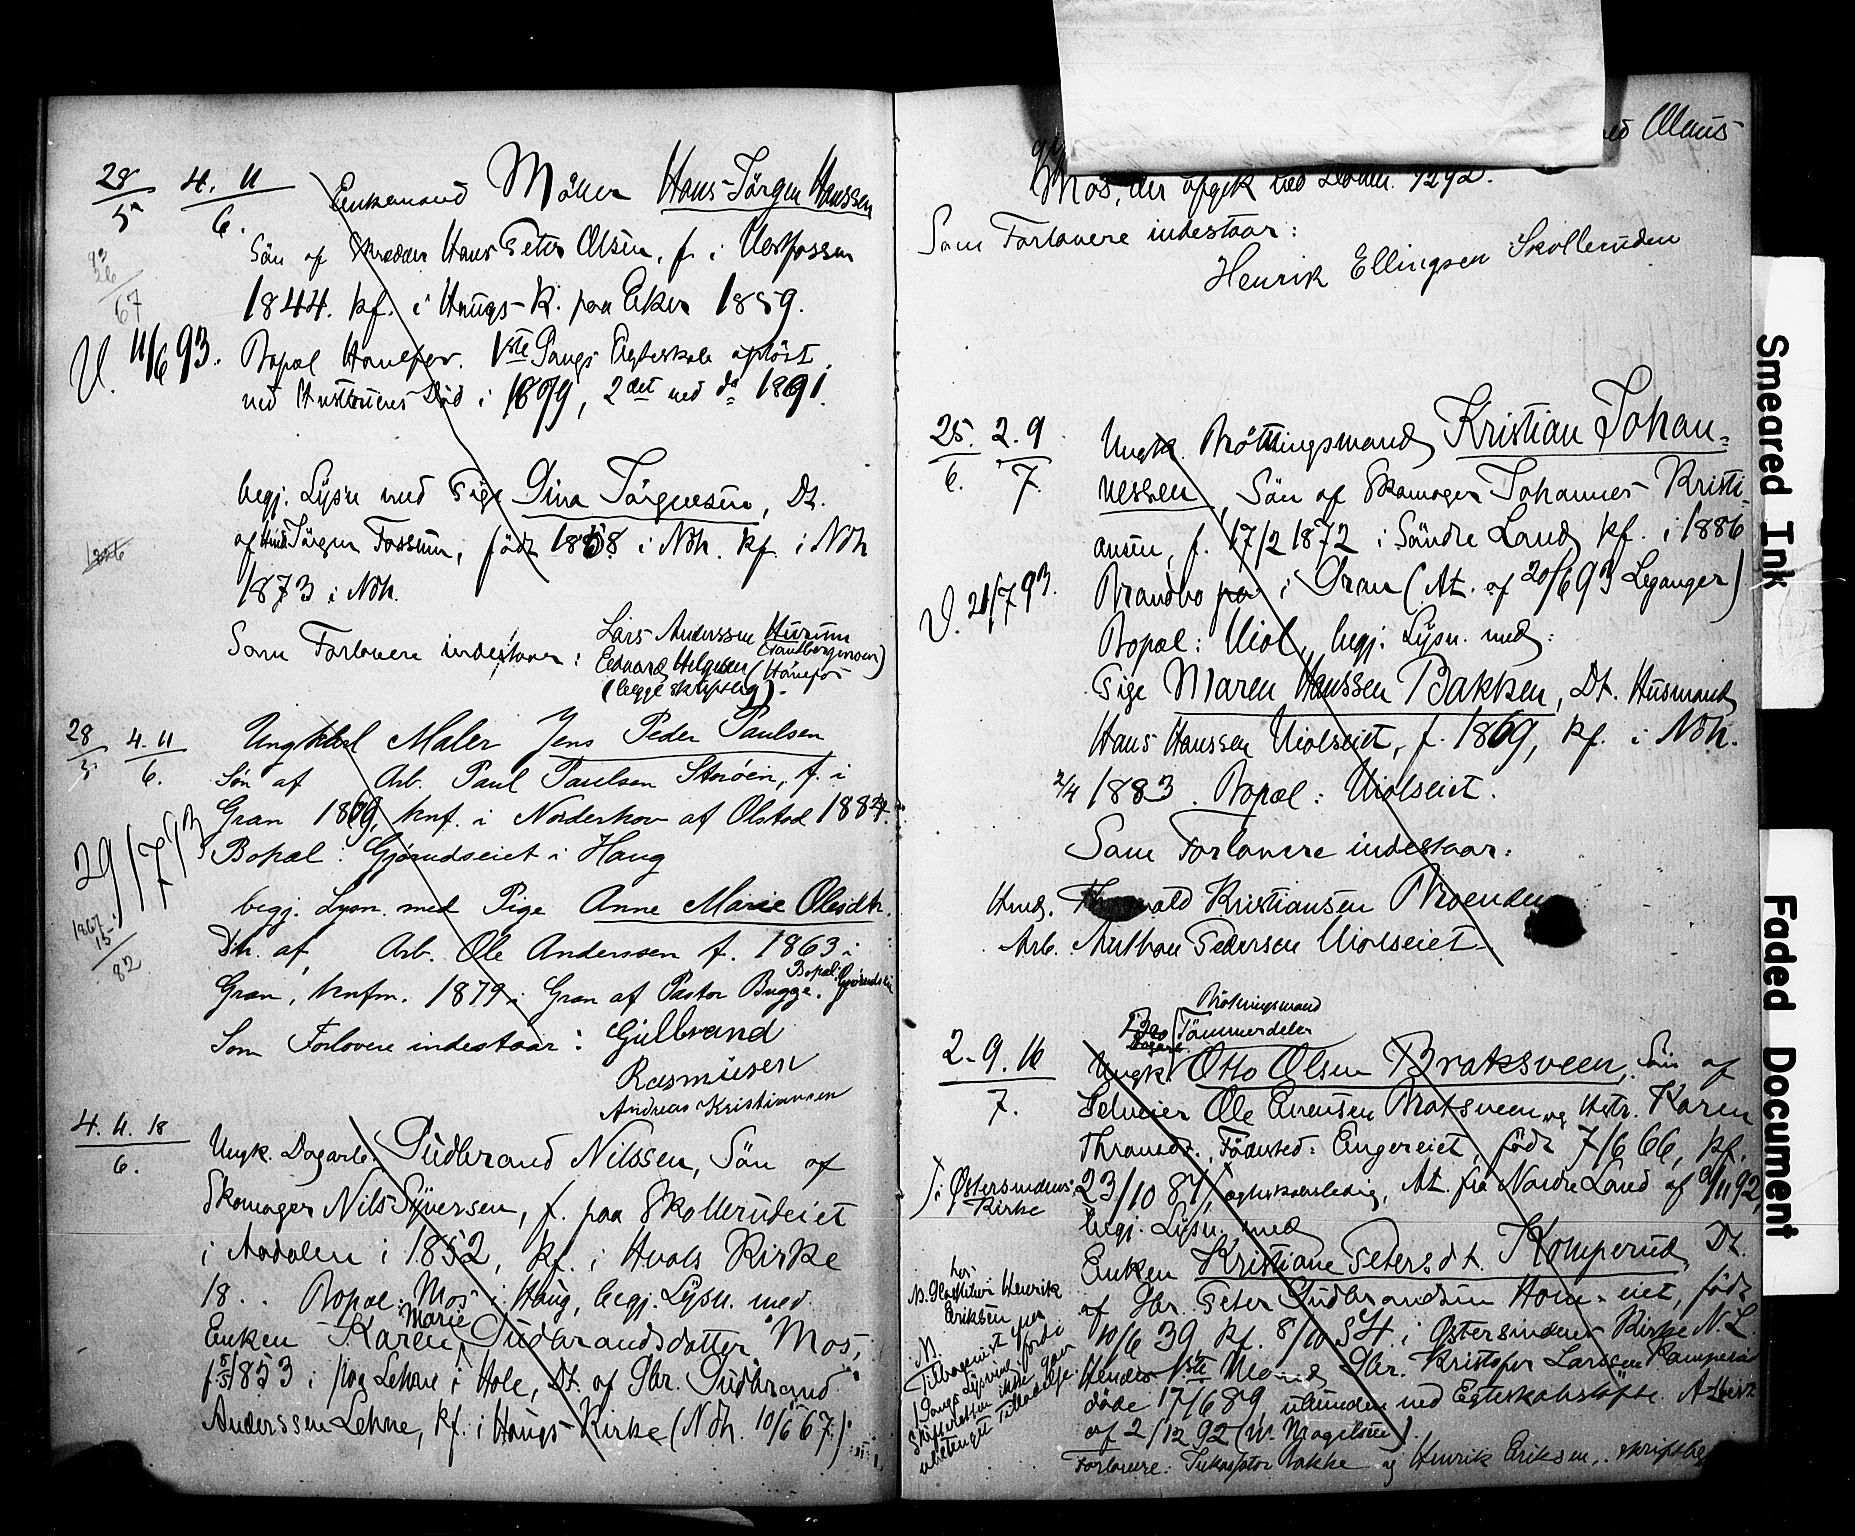 28/5 4. 11/6.
Enkemand Möller Hans Jörgen Hanssen
Sön af Skrædder Hans Peter Olsen, f. i Vestfossen
1844. kf. i Haugs K. paa Eker 1859.
V. 11/6 93.
Bopæl Hönefos. 1ste Gangs Egteskab oplöst
ved Hustruens Död i 1879, 2det ved do 1891.
begj. Lysn. med Pige Dina Jörgensen, Dt.
af Jörgen Fossum, född 1858 i Ndh. kf. i Ndh
1873 i Ndh.
Som Forlovere indestaaer: Lars Anderssen Hurum
Edvard Helgesen (Hönefos
(begge skriftlig).
28/5 4. 11/6.
Ungkarl Maler Jens Peder Paulsen
Søn af Arb. Paul Paulsen Storøen, f. i
Gran 1869, knf. i Norderhov af Olstad 1884.
29/7 93
Bopæl: Gjørudseiet i Haug
begj. Lysn. med Pige Anne Marie Olesdtr.
Dtr. af Arb. Ole Anderssen f. 1863 i
Gran, knfm. 1879 i Gran af Pastor Bugge. Bopæl:
Som Forlovere indestaar: Gulbrand
Rasmusen
Andreas Kristiansen
4. 11. 18/6.
Ungk. Dagarb. Gudbrand Nilssen, Sön af
Skomager Nils Syversen, f. paa Skollerudeiet
i Aadalen i 1852, kf. i Hvals Kirke
18 . . Bopæl: Mos i Haug, begj. Lysn. med
Enken Karen Marie Gudbrandsdatter Mos,
f. 5/5 1853 i paa Lehne i Hole, Dt. af Gbr. Gudbrand
Anderssen Lehne, kf. i Haugs Kirke (Ndh. 10/6 67.)
Olaus
Mos, der afgik ved Döden 7/2 92.
Som Forlovere indestaar:
Henrik Ellingsen Skolleruden
25/6. 2. 9/7.
Ungk. Bröttningsmand Kristian Johan-
nessen, Sön af Skomager Johannes Kristi-
ansen, f. 17/2 1872 i Söndre Land kf. i 1886
V. 21/7 93.
Brandbo paa i Gran (At. af 20/6 93 Leganger)
Bopæl: Viol, begj. Lysn. med:
Pige Maren Hanssen Bakken, Dt. Husmand
Hans Hanssen Violseiet, f. 1869, kf. i Ndh.
2/4 1883. Bopæl: Violseiet.
Som Forlovere indestaar:
Hmd. Kristiansen Moenden
Arb. Anthon Pedersen Violseiet
Brötningsmand
Tömmerdeler
2. 9. 16/7.
Ungk. Otto Olsen Bratsveen, Sön af
Selveier Ole Evensen Bratsveen og Hstr. Karen
Thronsdr., Födested: Engereiet, född 7/6 66, kf.
i Østersindens Kirke
23/10 81, egteskabsledig, At. fra Nordre Land af 9/11 92,
begj. Lysn. med
Enken Kristiane Petersdt. Komperud, Dt.
af Gbr. Peter Gudbrandsen Hom-eiet, född
10/6 39 kf. 8/10 54 i Østersindens Kirke N. L.
Hendes 1ste Mand Gbr. Kristofer Larssen Kamperud
döde 17/6 89, ubunden ved Egteskabslöfte. Attest
af 2/12 92 (W. Magelsen).
Forlovere: Bakke og Henrik Eriksen, skriftlig
Smeared Ink
Faded Document